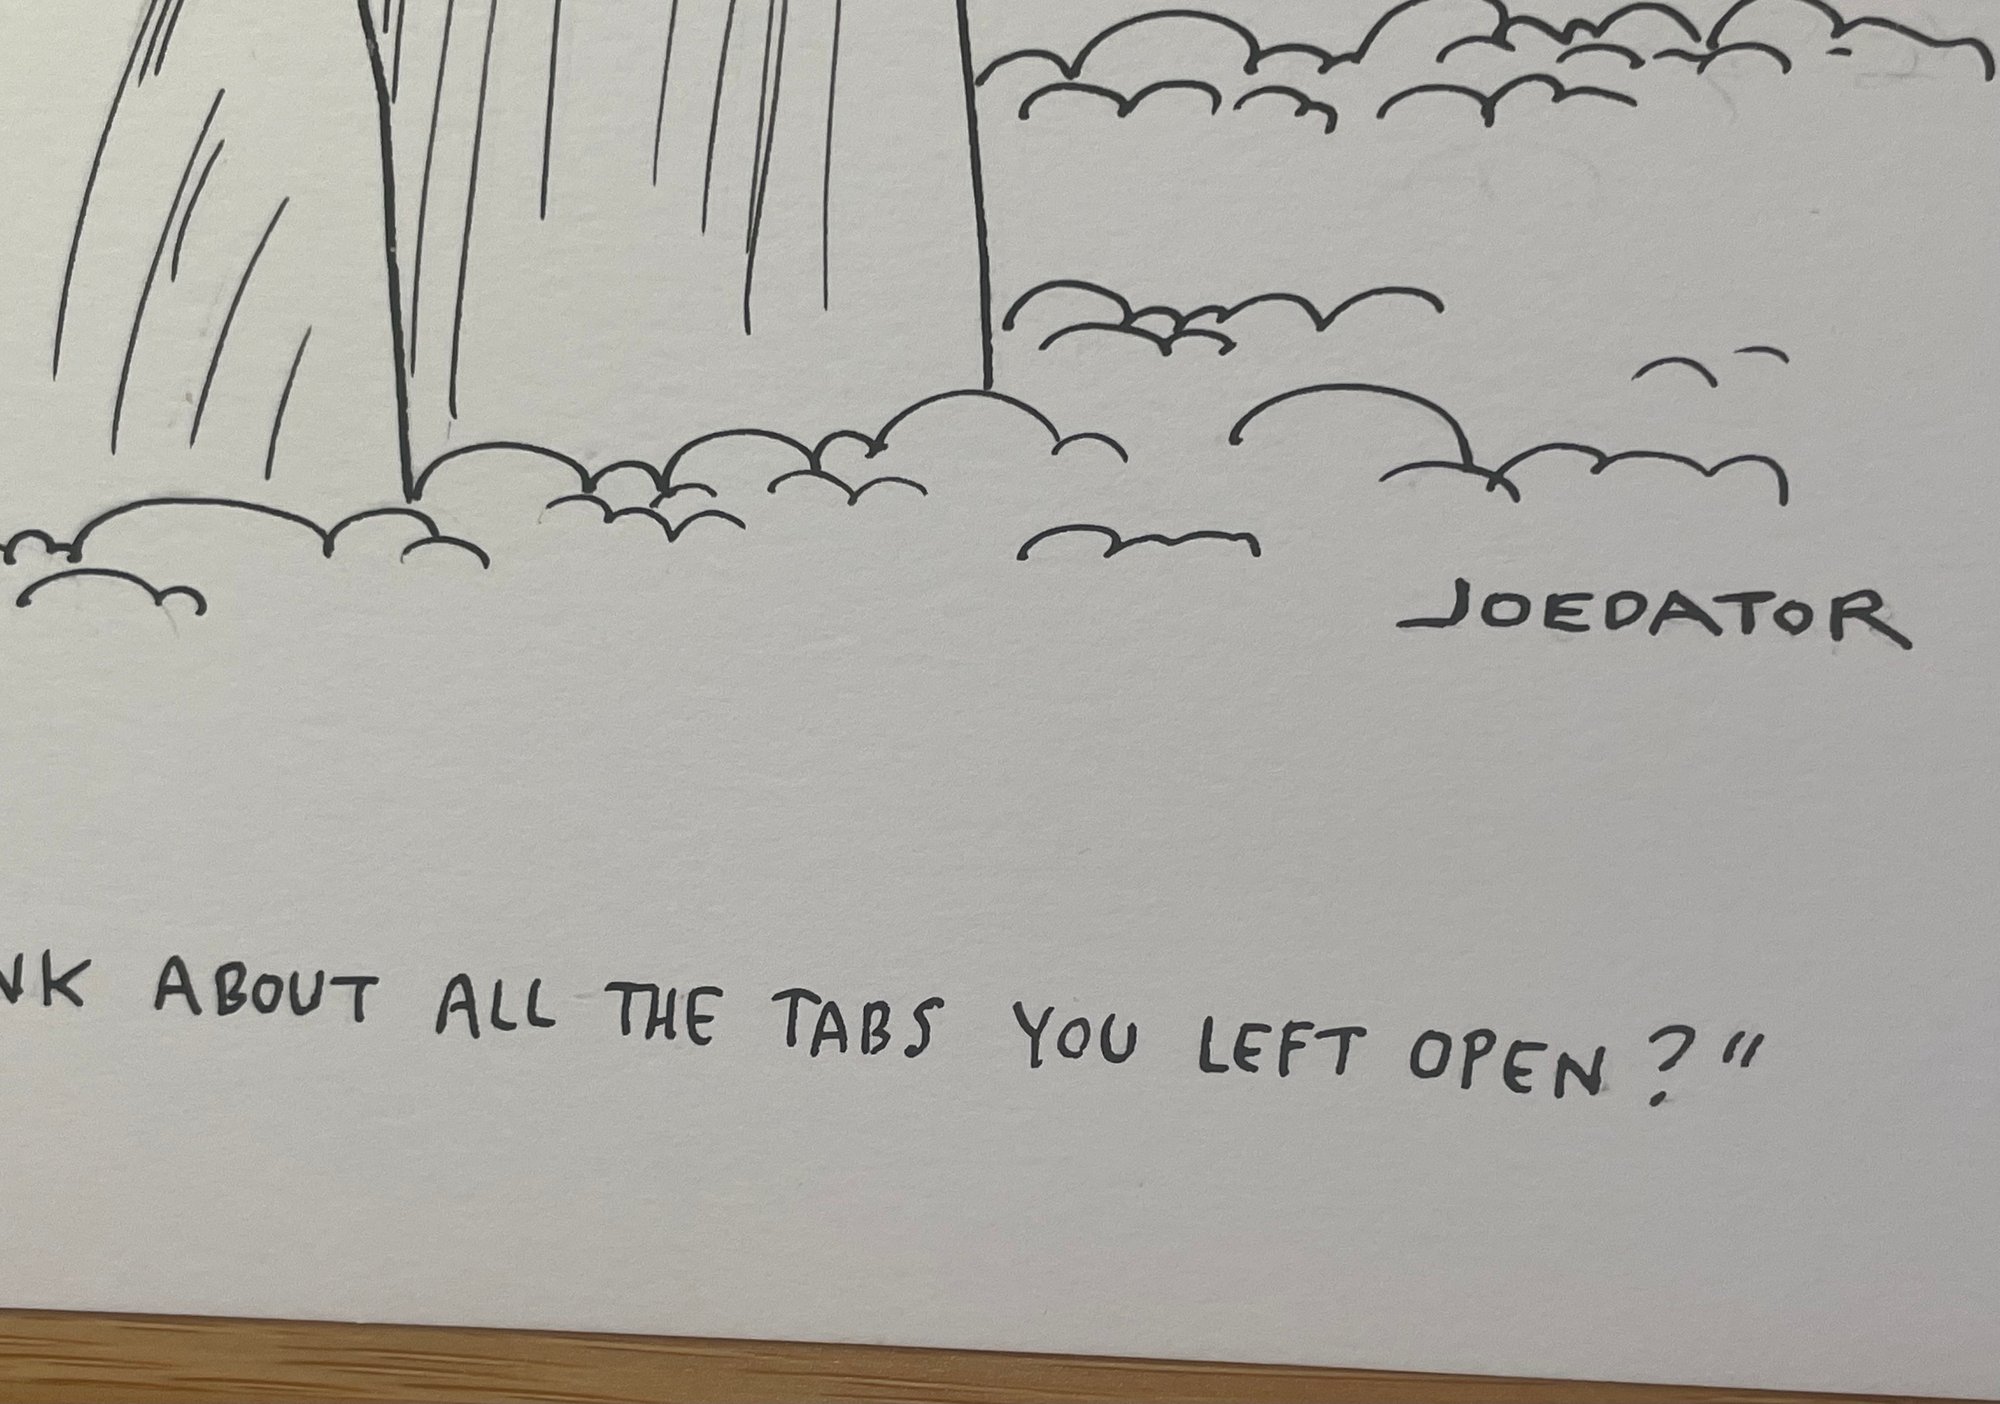 JOEDATOR
NK ABOUT ALL THE TABS YOU LEFT OPEN?"